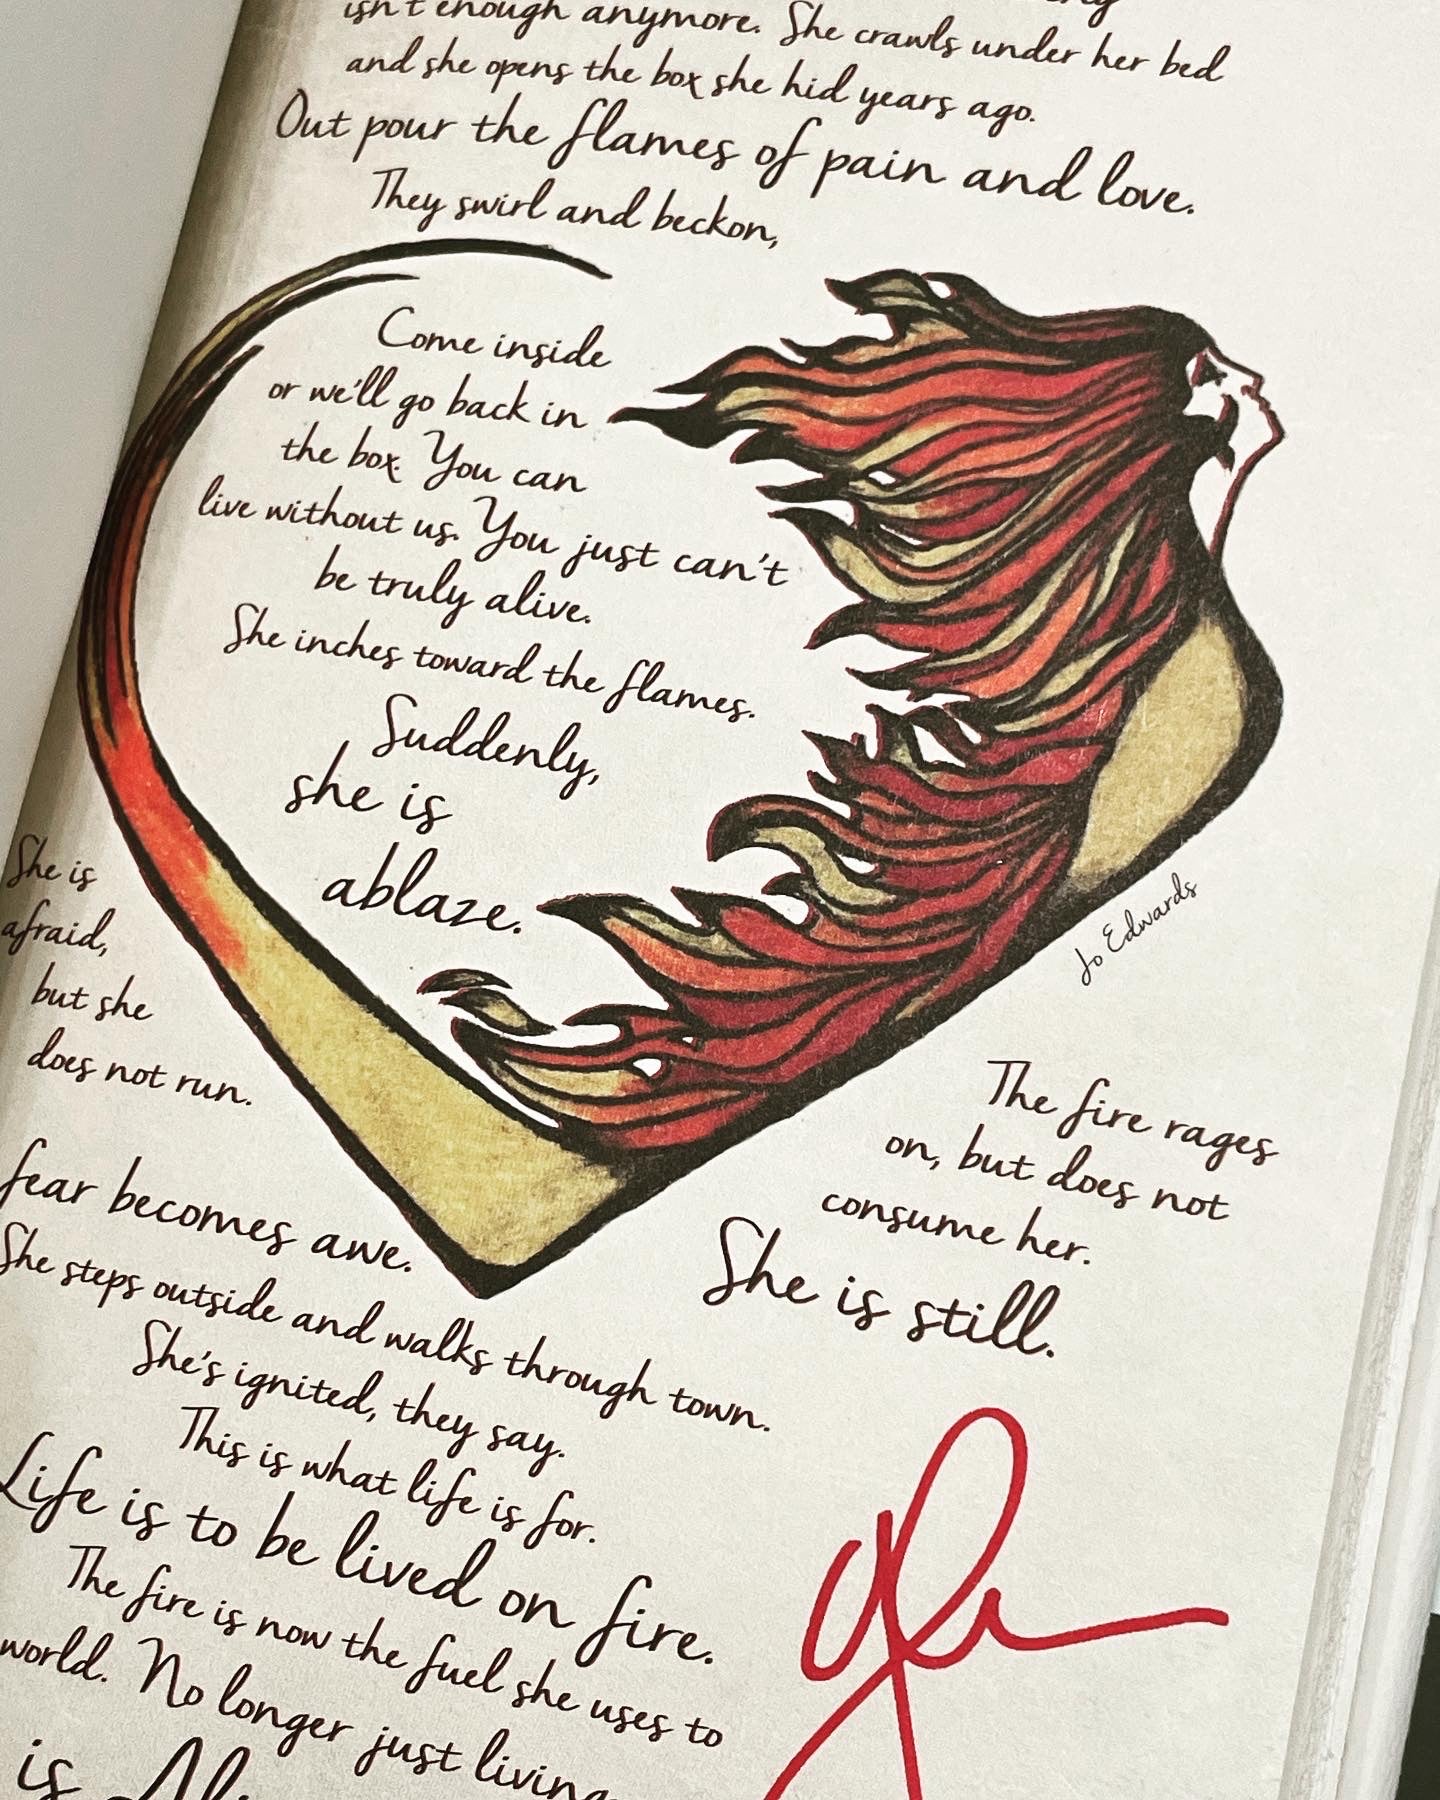 isn't enough anymore. She crawls under her bed
and she opens the box she hid years ago.
Out pour the flames of pain and love.
They swirl and beckon,
Come inside
or we'll go back in
the box. You can
live without us. You just can't
be truly alive.
She inches toward the flames.
Suddenly,
she is
ablaze.
She is
afraid,
but she
does not run.
Jo Edwards
The fire rages
on, but does not
consume her.
She is still.
fear becomes awe.
She steps outside and walks through town.
She's ignited, they say.
This is what life is for.
Life is to be lived on fire.
The fire is now the fuel she uses to
world. No longer just living
is